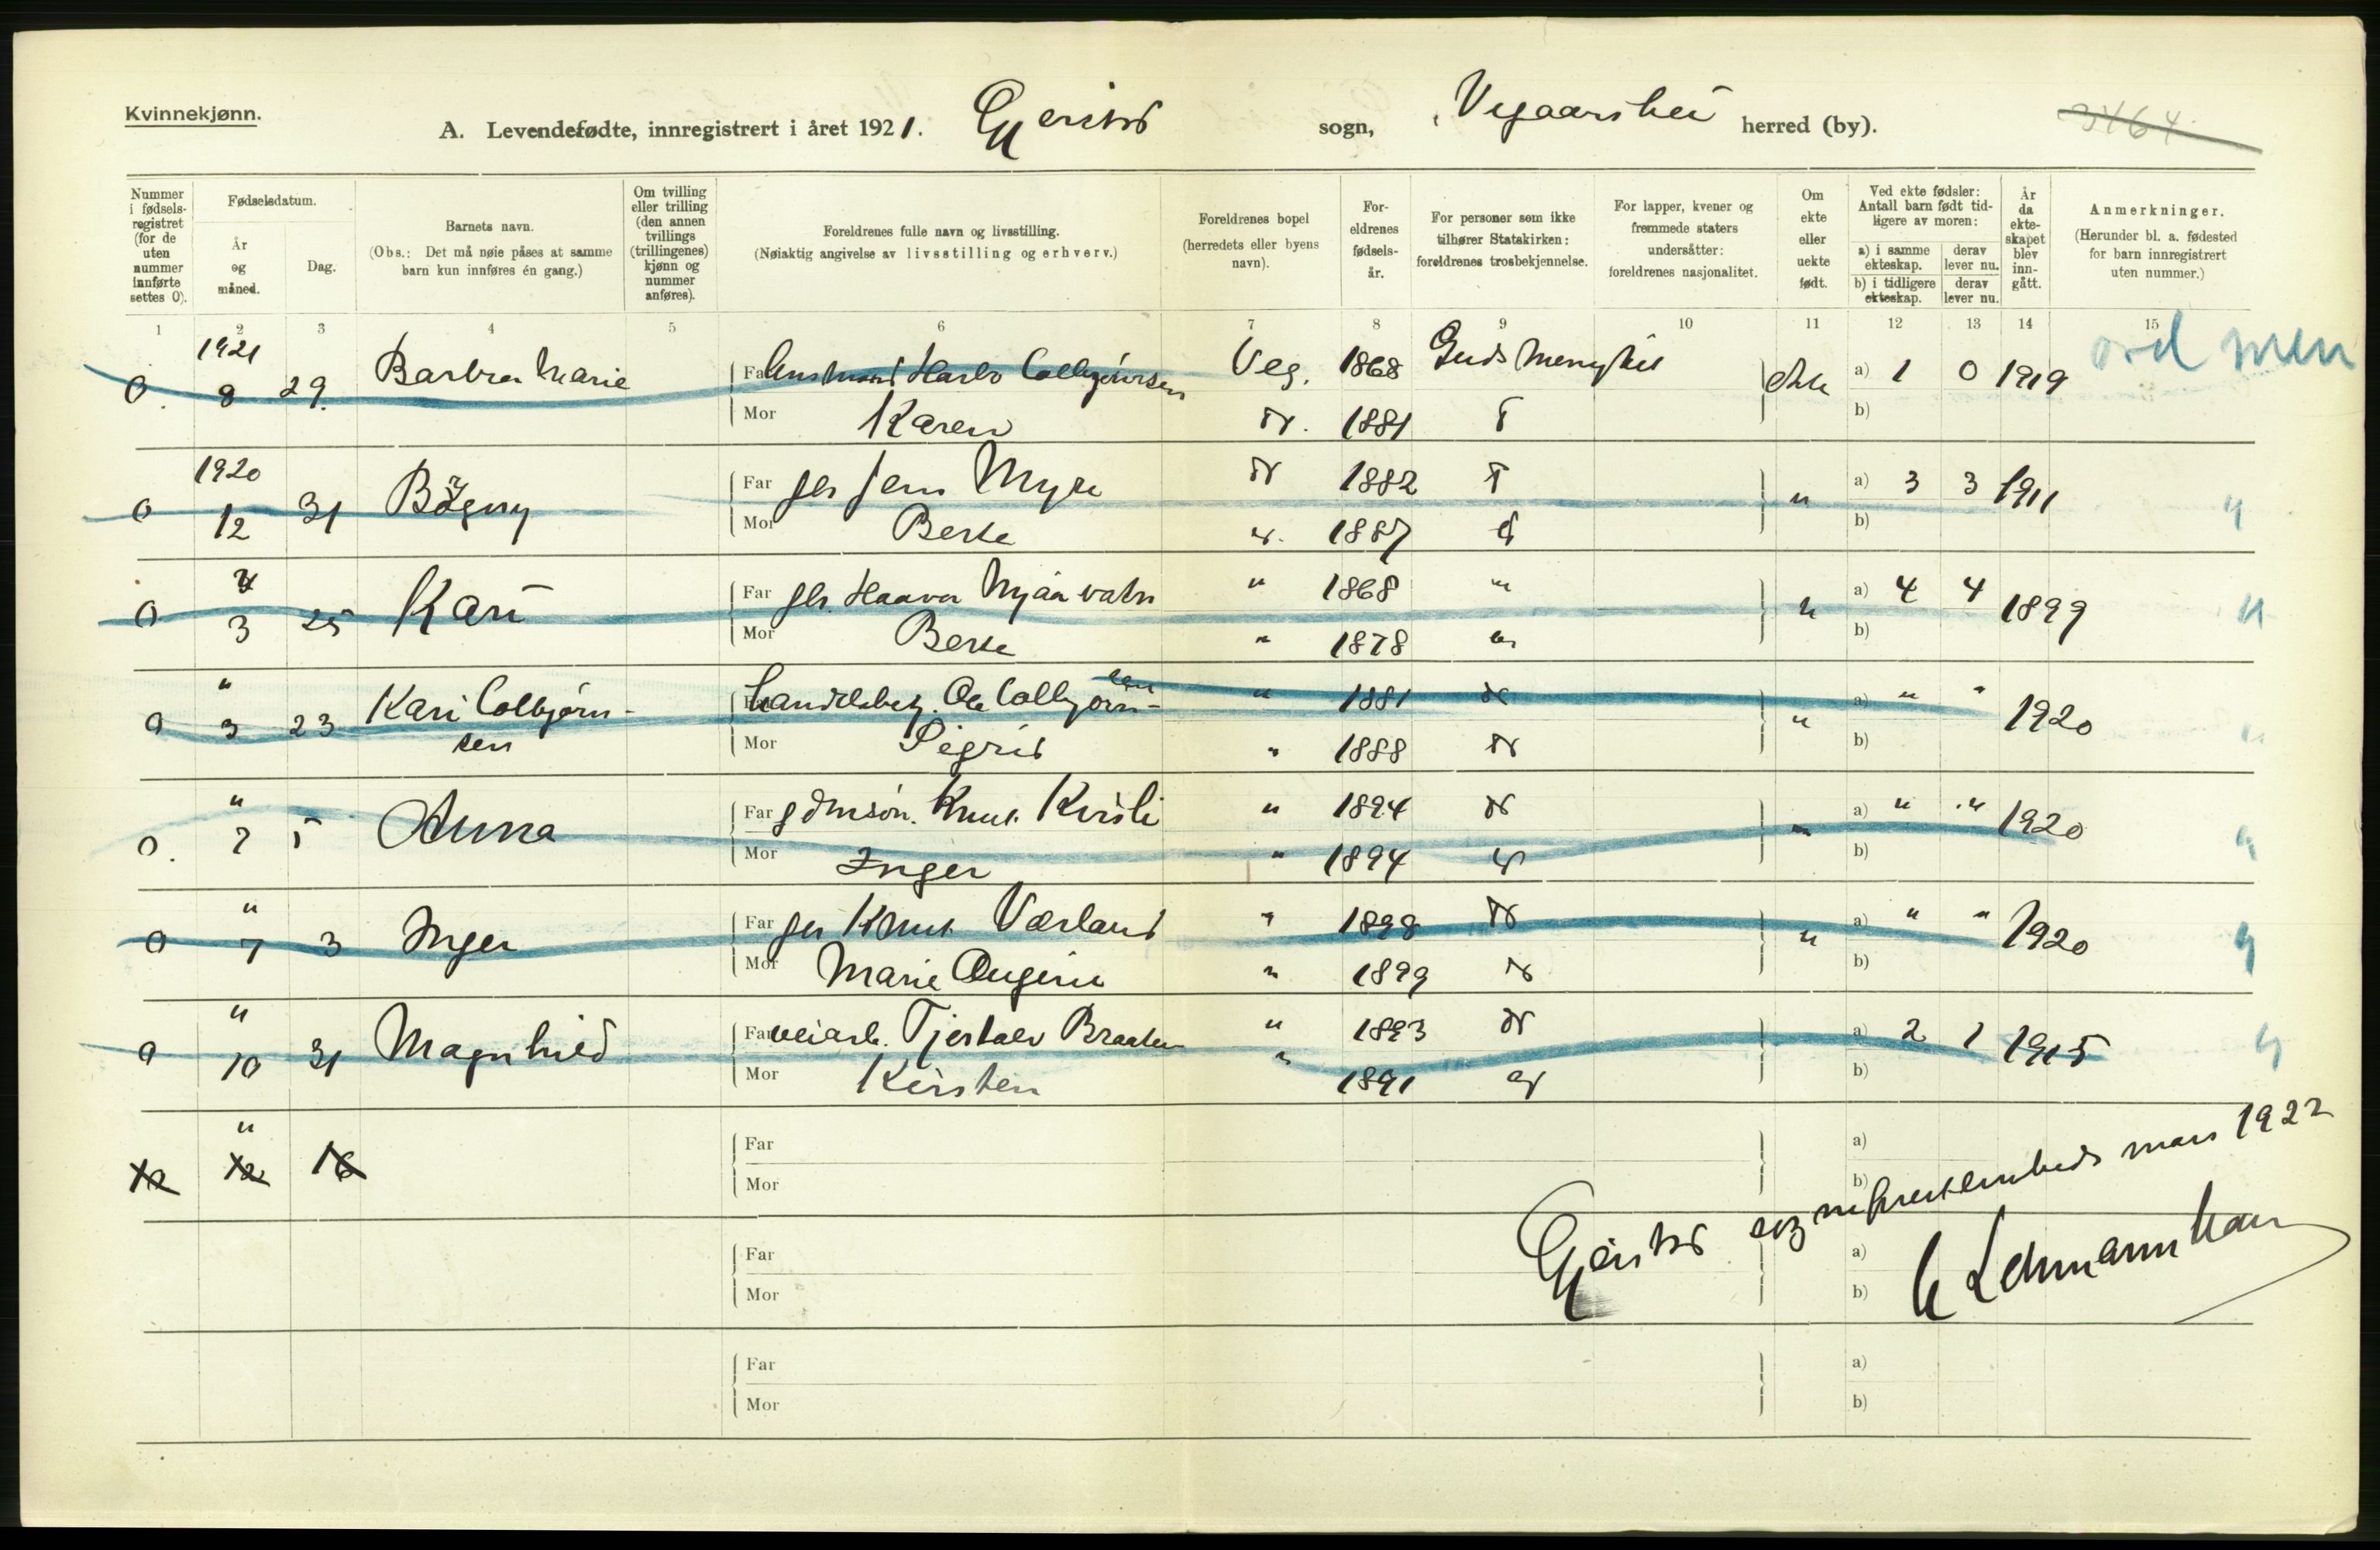 Kvinnekjønn.
A. Levendefødte, innregistrert i året 1921. Gjerstad sogn, Vegaarshei herred (by). 3464
Nummer i fødselsregistret (for de uten nummer innførte settes 0).
Fødselsdatum.
År og måned.
Dag.
Barnets navn.
(Obs.: Det må nøie påses at samme barn kun innføres én gang.)
Om tvilling eller trilling (den annen tvillings (trillingenes) kjønn og nummer anføres).
Foreldrenes fulle navn og livsstilling.
(Nøiaktig angivelse av livsstilling og erhverv.)
Foreldrenes bopel (herredets eller byens navn).
Foreldrenes fødselsår.
For personer som ikke tilhører Statskirken: foreldrenes trosbekjennelse.
For lapper, kvener og fremmede staters undersåtter: foreldrenes nasjonalitet.
Om ekte eller uekte født.
Ved ekte fødsler: Antall barn født tidligere av moren:
a) i samme ekteskap. derav lever nu.
b) i tidligere ekteskap. derav lever nu.
År da ekteskapet blev inngått.
Anmerkninger.
(Herunder bl. a. fødested for barn innregistrert uten nummer.)
1 2 3 4 5 6 7 8 9 10 11 12 13 14 15
0. 1921 8 29. Barbra Marie Far Lensmand Harbo Colbjørnsen Veg. 1868 Guds Menighet ekte a) 1 0 1919 ord men
Mor Karen 1881 b)
0 1920 12 31 Far Jens Myre 1882 " a) 3 3 1911 "
Mor Berte 1887 b)
0 3 25 Kari Far Haavor " 1868 " " a) 4 4 1899 "
Mor Berte " 1878 " b)
0 " 3 23 Kari Colbjørnsen Handelsbet. Colbjørnsen " 1881 " a) " " 1920 "
Mor Sigrid " 1888 b)
0. " 7 5 Anna Far Knut " 1894 " a) " " 1920 "
Mor Inger " 1894 b)
0 " 7 3 Inger Far Knut Værland " 1898 " a) " " 1920 "
Mor Marie " 1899 b)
0 " 10 31 Magnhild Far veiarb. Tjestolv Braaten " 1893 a) 2 1 1915 "
Mor Kirsten " 1891 b)
12 " 12 16 Far a)
Mor b)
Gjerstad sogneprestembede mars 1922
Far a)
Mor b)
Far a)
Mor b)